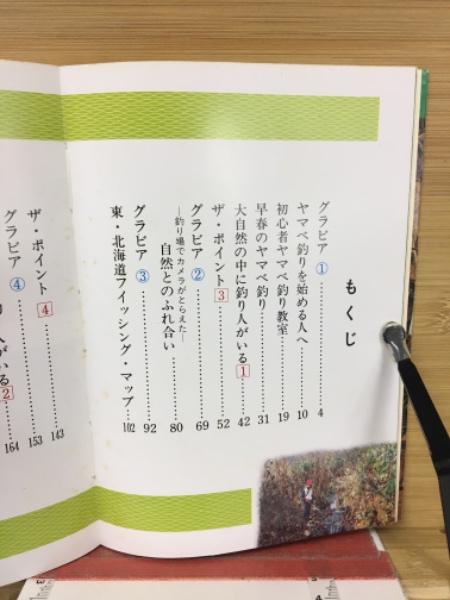 もくじ
グラビア①…………4
ヤマベ釣りを始める人へ……10
初心者ヤマベ釣り教室……19
早春のヤマベ釣り……31
大自然の中に釣り人がいる1……42
ザ・ポイント3……52
グラビア②…………69
―釣り場でカメラがとらえた―
自然とのふれ合い……80
グラビア③…………92
東・北海道フィッシング・マップ…102
ザ・ポイント4……143
グラビア④……153
がいる2…164